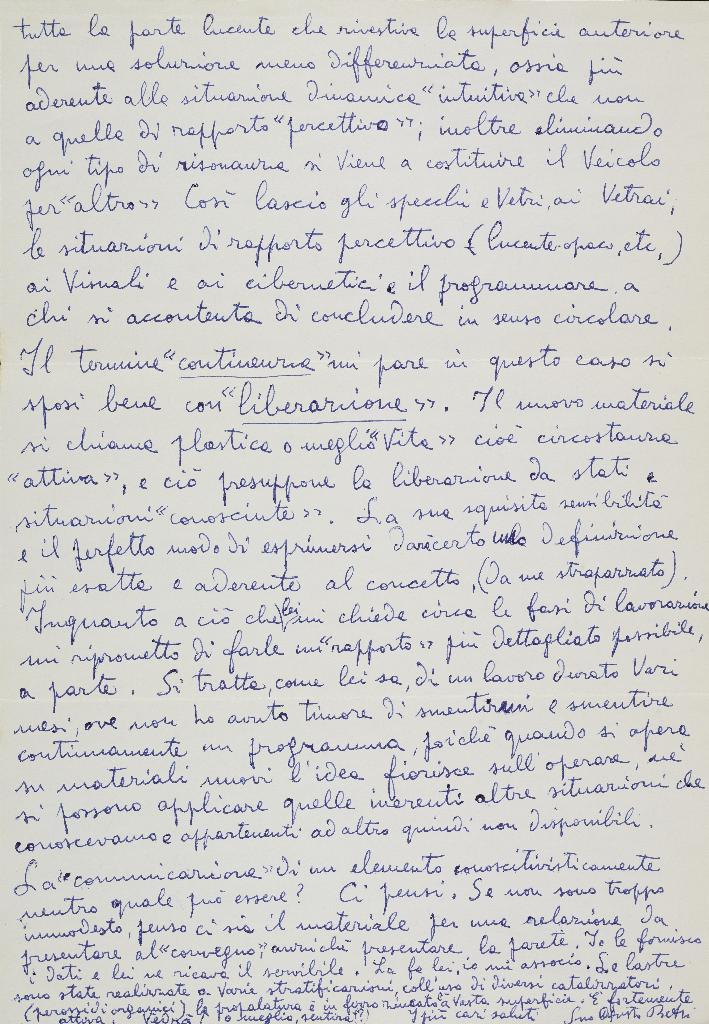 tutta la parte lucente che rivestiva la superficie anteriore
per una soluzione meno differenziata, ossia più
aderente alla situazione dinamica "intuitiva" che non
a quella di rapporto "percettivo"; inoltre eliminando
ogni tipo di risonanza si viene a costituire il Veicolo
per "altro" Così lascio gli specchi e Vetri, ai Vetrai;
le situazioni di rapporto percettivo (lucente-opaco, etc,)
ai Visuali e ai cibernetici e il programmare a
chi si accontenta di concludere in senso circolare.
Il termine "continenza" mi pare in questo caso si
sposi bene con "liberazione". Il nuovo materiale
si chiama plastica o meglio "Vita" cioè circostanza
"attiva", e ciò presuppone la liberazione da stati e
situazioni "conosciute". La sua squisita sensibilità
e il perfetto modo di esprimersi darà certo una definizione
più esatta e aderente al concetto, (da me strapazzato).
Inquanto a ciò che lei mi chiede circa le fasi di lavorazione
mi riprometto di farle un "rapporto" più dettagliato possibile,
a parte. Si tratta, come lei sa, di un lavoro durato Vari
mesi, ove non ho avuto timore di smentirmi e smentire
continuamente un programma, poichè quando si opera
su materiali nuovi l'idea fiorisce sull'operare, nè
si possono applicare quelle inerenti altre situazioni che
conoscevamo e appartenenti ad altro quindi non disponibili.
La "comunicazione" di un elemento conoscitivisticamente
neutro quale può essere? Ci pensi. Se non sono troppo
immodesto, penso ci sia il materiale per una relazione da
presentare al "convegno", anzichè presentare la parete. Io le fornisco
i dati e lei ne ricava il servibile. La fa lei, io mi associo. Le lastre
sono state realizzate a varie stratificazioni, coll'uso di diversi catalizzatori.
(perossidi organici) la propalatura è in ferro zincato a Vasta superficie. È fortemente
attiva. Vedrà! (o meglio, sentirà!!) I più cari saluti Suo